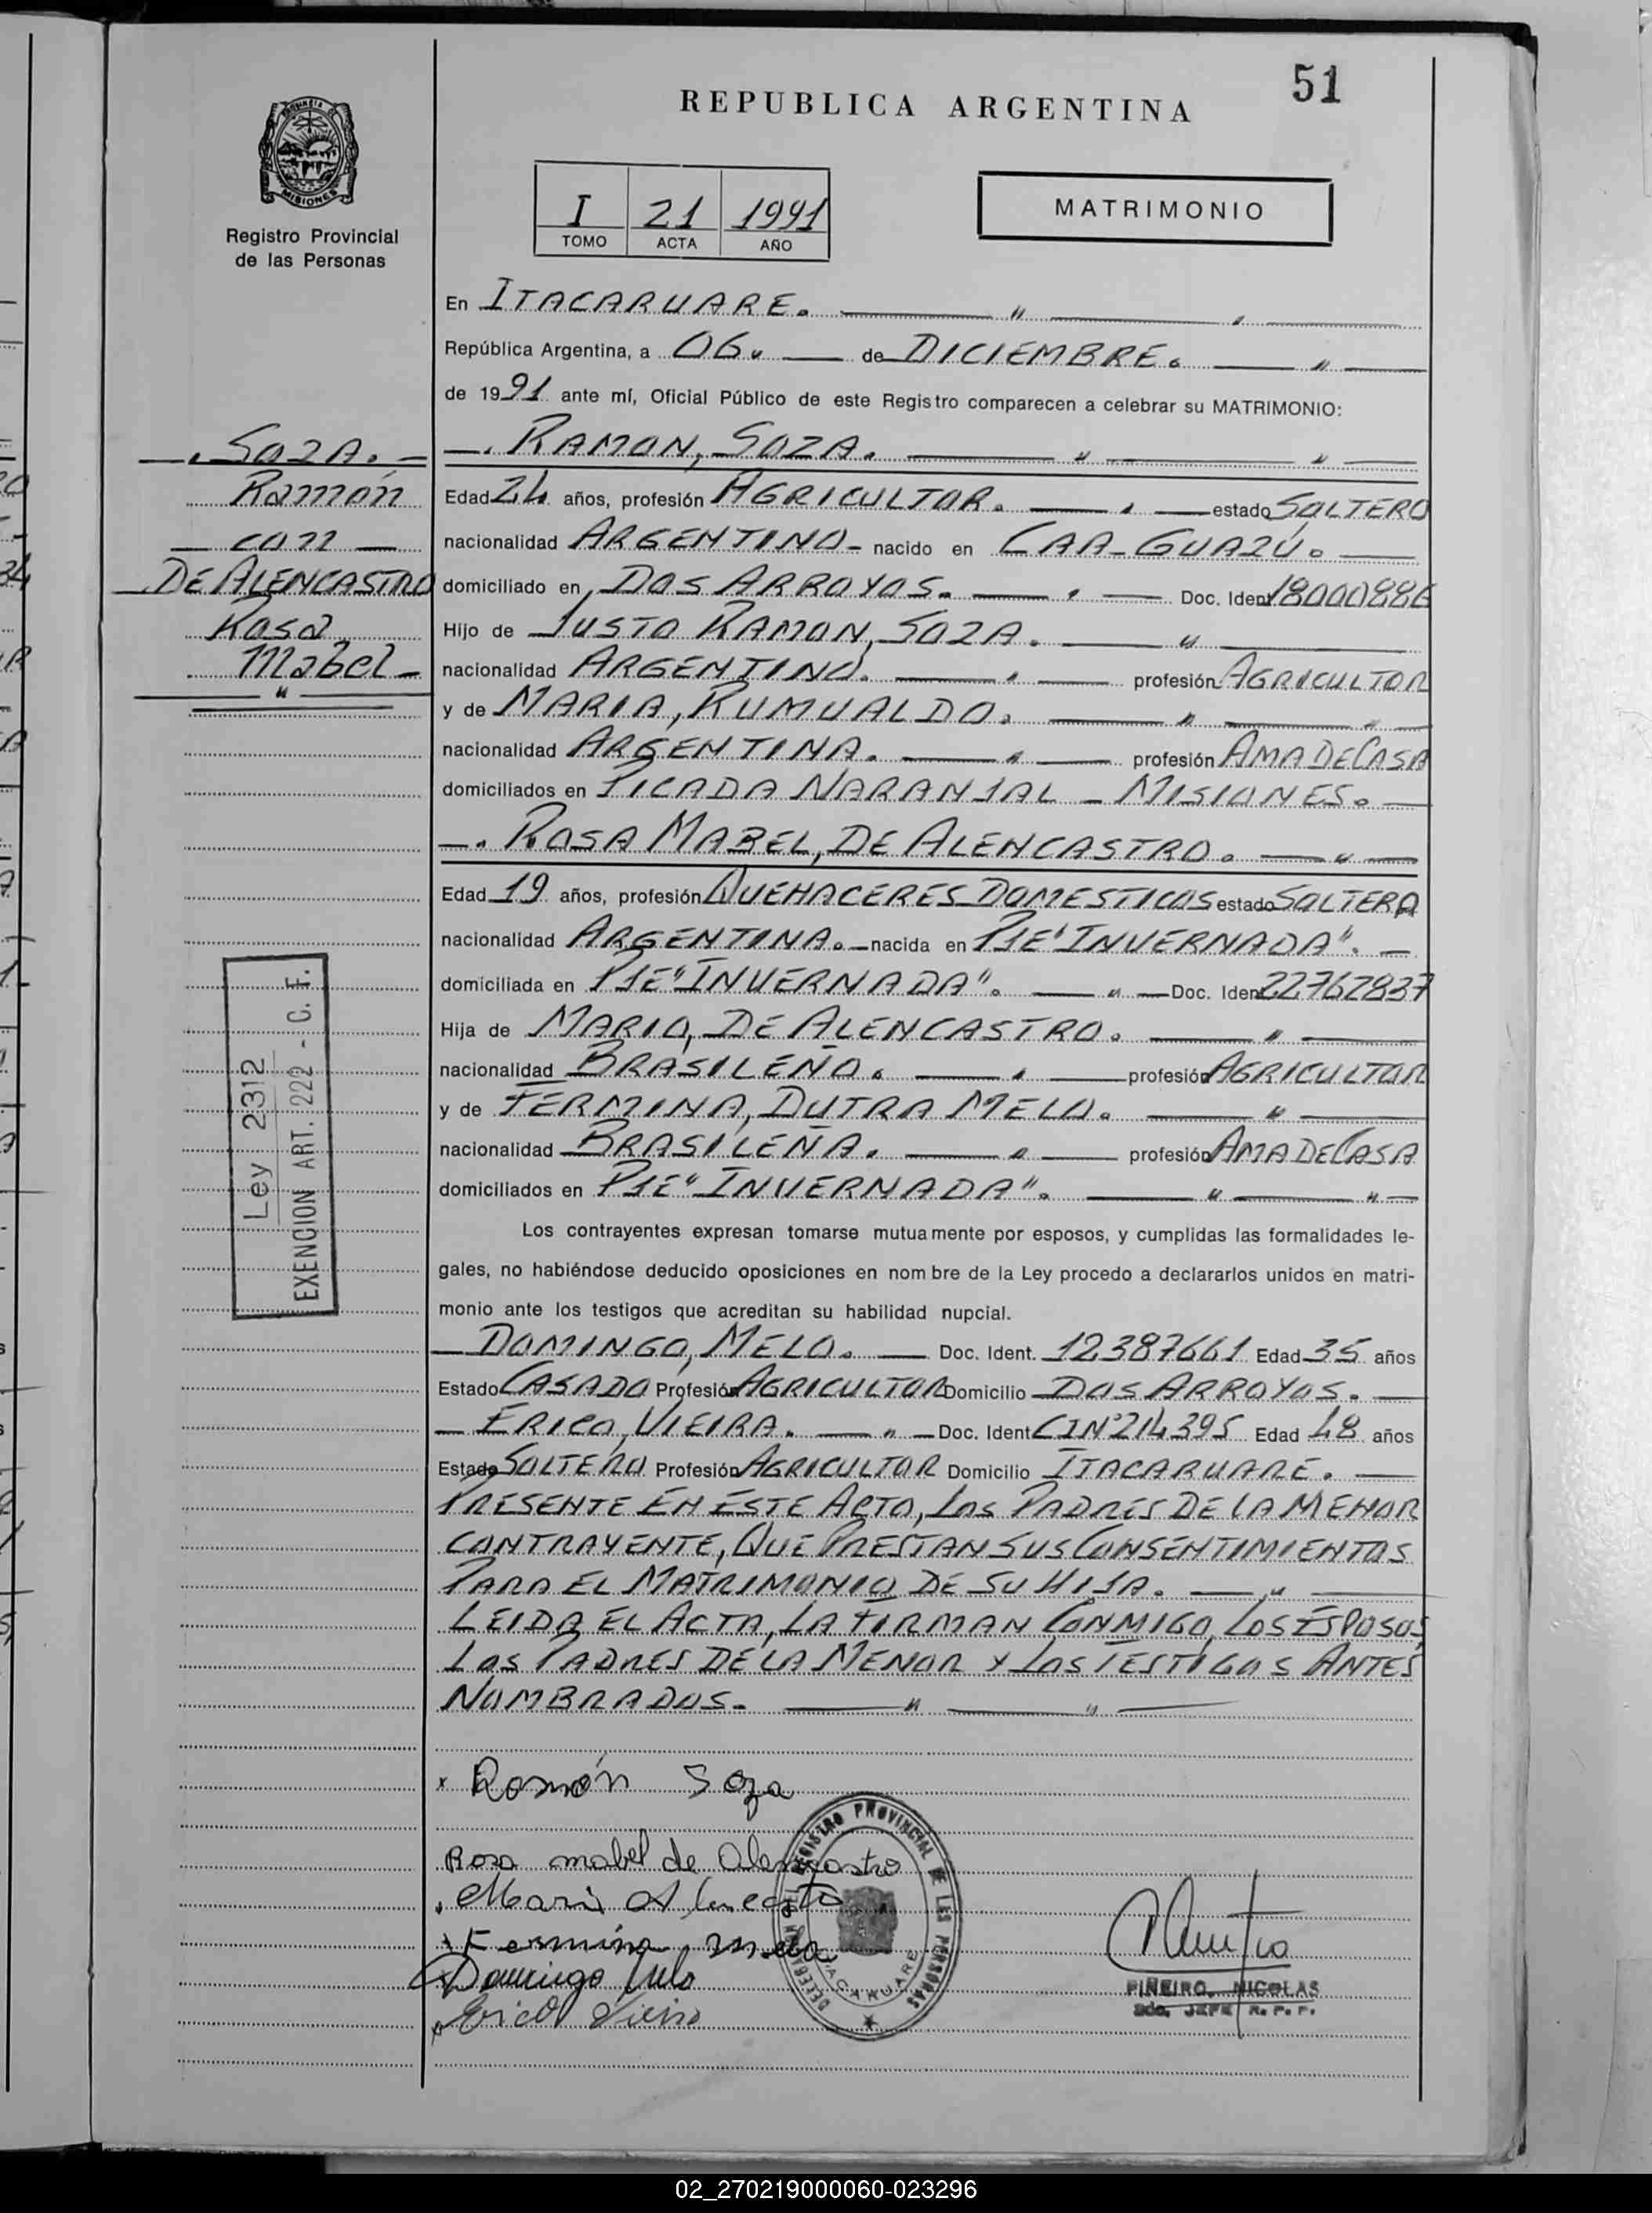 51
REPUBLICA ARGENTINA
MISIONES
Registro Provincial
de las Personas
I 21 1991
TOMO ACTA AÑO
MATRIMONIO
En ITACARUARE. — " — " —
República Argentina, a 06. — de DICIEMBRE. — " —
de 1991 ante mí, Oficial Público de este Registro comparecen a celebrar su MATRIMONIO:
—. SOZA. —
Ramón
— con —
DE ALENCASTRO
Rosa
Mabel —
—. RAMON, SOZA. — " — " —
Edad 24 años, profesión AGRICULTOR. — " — estado SOLTERO
nacionalidad ARGENTINO — nacido en CAA-GUAZÚ. —
domiciliado en DOS ARROYOS. — " — Doc. Ident 18000886
Hijo de JUSTO RAMON, SOZA. — " —
nacionalidad ARGENTINO. — " — profesión AGRICULTOR
y de MARIA, RUMUALDO. — " — " —
nacionalidad ARGENTINA. — " — profesión AMA DE CASA
domiciliados en PICADA NARANJAL — MISIONES. —
—. ROSA MABEL, DE ALENCASTRO. — " —
Edad 19 años, profesión QUEHACERES DOMESTICOS estado SOLTERA
nacionalidad ARGENTINA. — nacida en PJE "INVERNADA". —
domiciliada en PJE "INVERNADA". — " — Doc. Ident 22762837
Hija de MARIO, DE ALENCASTRO. — " —
nacionalidad BRASILEÑO. — " — profesión AGRICULTOR
y de FERMINA, DUTRA MELO. — " —
nacionalidad BRASILEÑA. — " — profesión AMA DE CASA
domiciliados en PJE "INVERNADA". — " — " —
Ley 2312
EXENCION ART. 222 - C. F.
Los contrayentes expresan tomarse mutuamente por esposos, y cumplidas las formalidades le-
gales, no habiéndose deducido oposiciones en nombre de la Ley procedo a declararlos unidos en matri-
monio ante los testigos que acreditan su habilidad nupcial.
— DOMINGO, MELO. — Doc. Ident. 12387661 Edad 35 años
Estado CASADO Profesión AGRICULTOR Domicilio DOS ARROYOS. —
— ERICO, VIEIRA. — " — Doc. Ident CI Nº 214395 Edad 48 años
Estado SOLTERO Profesión AGRICULTOR Domicilio ITACARUARE. —
PRESENTE EN ESTE ACTO, LOS PADRES DE LA MENOR
CONTRAYENTE, QUE PRESTAN SUS CONSENTIMIENTOS
PARA EL MATRIMONIO DE SU HIJA. — " —
LEIDA EL ACTA, LA FIRMAN CONMIGO, LOS ESPOSOS,
LOS PADRES DE LA MENOR Y LOS TESTIGOS ANTES
NOMBRADOS. — " — " —
x Ramón Soza
Rosa mabel de Alencastro
Fermina melo
Domingo Melo
Erico Vieira
REGISTRO PROVINCIAL DE LES PERSONAS
ITACARUARE
PIÑEIRO, NICOLAS
JEFE R. P. P.
02_270219000060-023296